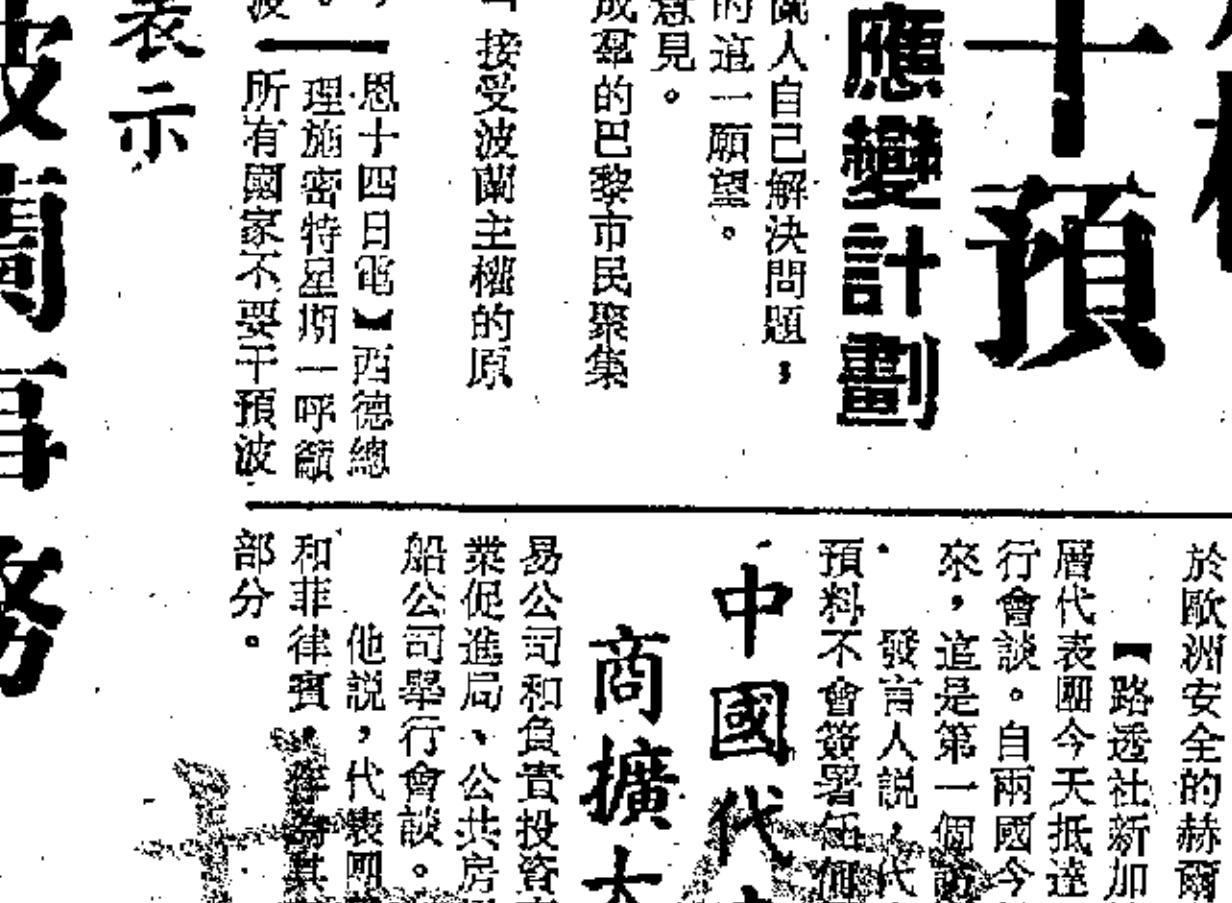 干預
應變計劃
蘭人自己解決問題，
的這一願望。
意見。
成羣的巴黎市民聚集
接受波蘭主權的原
恩十四日電】西德總
理施密特星期一呼籲
所有國家不要干預波
表示
波蘭事務
於歐洲安全的赫爾
【路透社新加
層代表團今天抵達
行會談。自兩國今
來，這是第一個訪
發言人説，代
預料不會簽署任何
中國代
商擴大
易公司和負責投資
業促進局、公共房
船公司舉行會談。
他説，代表團
和菲律賓，作爲其
部分。